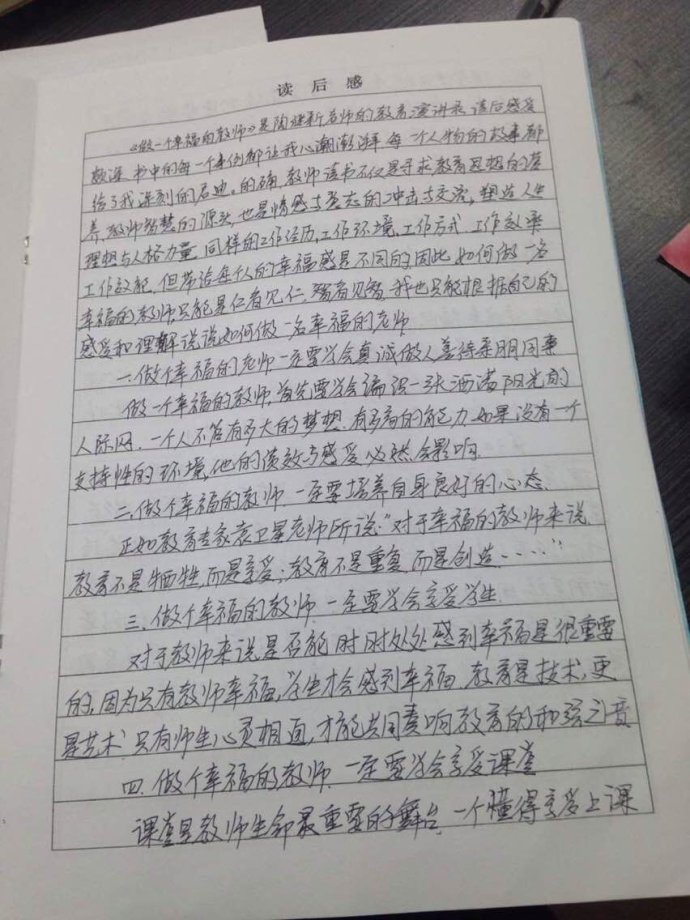 读后感
《做一个幸福的教师》是陶继新老师的教育演讲录,读后感受
颇深,书中的每一个事例都让我心潮澎湃,每一个人物的故事都
给了我深刻的启迪。的确,教师读书不仅是寻求教育思想的营
养,教师智慧的源头,也是情感与意志的冲击与交流,塑造人生
理想与人格力量。同样的工作经历,工作环境,工作方式,工作效率
工作效能,但带给每个人的幸福感是不同的,因此,如何做一名
幸福的教师,只能是仁者见仁,智者见智,我也只能根据自己的
感受和理解说说如何做一名幸福的老师
一.做个幸福的老师一定要学会真诚做人善待亲朋同事
做一个幸福的教师,首先要学会编织一张洒满阳光的
人际网,一个人不管有多大的梦想,有多高的能力,如果没有一个
支持性的环境,他的绩效与感受必然会影响.
二.做个幸福的教师,一定要培养自身良好的心态.
正如教育专家袁卫星老师所说:“对于幸福的教师来说,
教育不是牺牲,而是享受;教育不是重复,而是创造.....”.
三.做个幸福的教师.一定要学会享受学生.
对于教师来说是否能时时处处感到幸福是很重要
的,因为只有教师幸福,学生才会感到幸福,教育是技术,更
是艺术.只有师生心灵相通,才能共同奏响教育的和弦之音
四.做个幸福的教师.一定要学会享受课堂
课堂是教师生命最重要的舞台,一个懂得享受上课